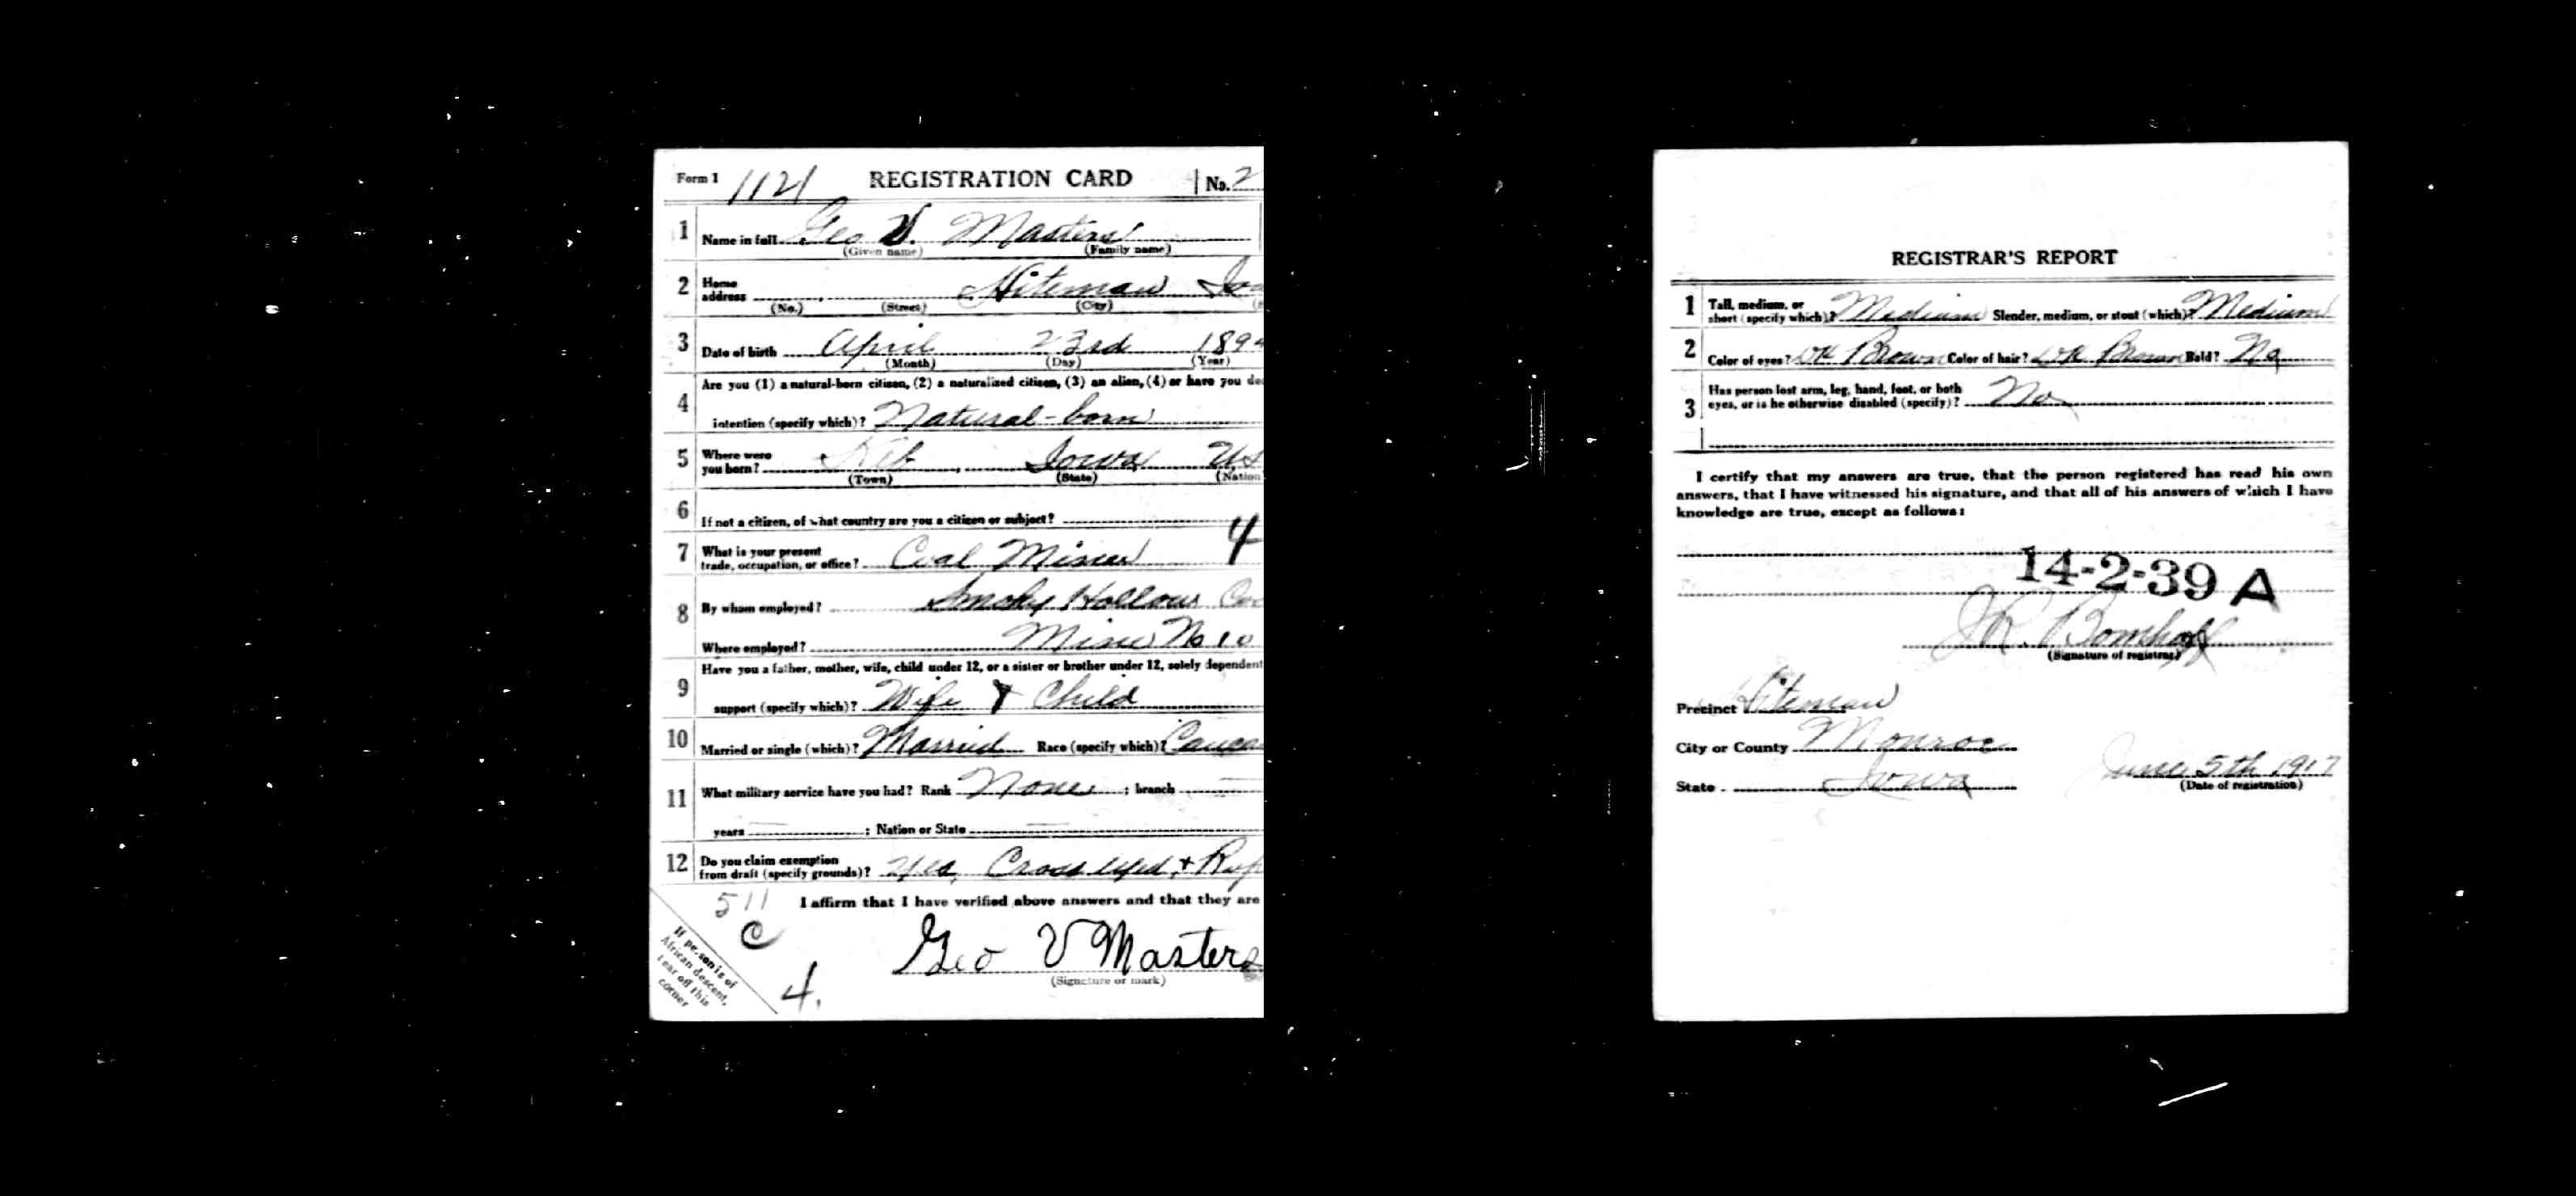 Form 1 1121 REGISTRATION CARD No. 2
1 Name in full Geo V. Masters
(Given name) (Family name)
2 Home address Hiteman
(No.) (Street) (City)
3 Date of birth April 23rd 189
(Month) (Day) (Year)
4 Are you (1) a natural-born citizen, (2) a naturalized citizen, (3) an alien, (4) or have you
intention (specify which)? Natural-born
5 Where were you born? Keb, Iowa US
(Town) (State) (Nation
6 If not a citizen, of what country are you a citizen or subject?
7 What is your present trade, occupation, or office? Coal Miner 4
8 By whom employed? Smoky Hollow Co
Where employed? Mine No 10
9 Have you a father, mother, wife, child under 12, or a sister or brother under 12, solely dependent
support (specify which)? Wife & Child
10 Married or single (which)? Married Race (specify which)? Cauca
11 What military service have you had? Rank None ; branch
years ; Nation or State
12 Do you claim exemption from draft (specify grounds)? Yes, Cross eyed, + Rup
I affirm that I have verified above answers and that they are
511
C
Geo V Masters
(Signature or mark)
4.
If person is of
African descent,
tear off this
corner
REGISTRAR'S REPORT
1 Tall, medium, or short (specify which)? Medium Slender, medium, or stout (which)? Medium
2 Color of eyes? Dk Brown Color of hair? Dk Brown Bald? No
3 Has person lost arm, leg, hand, foot, or both eyes, or is he otherwise disabled (specify)? No
I certify that my answers are true, that the person registered has read his own
answers, that I have witnessed his signature, and that all of his answers of which I have
knowledge are true, except as follows:
14-2-39 A
J.R. Bomhoff
(Signature of registrar)
Precinct Hiteman
City or County Monroe
State Iowa June 5th 1917
(Date of registration)